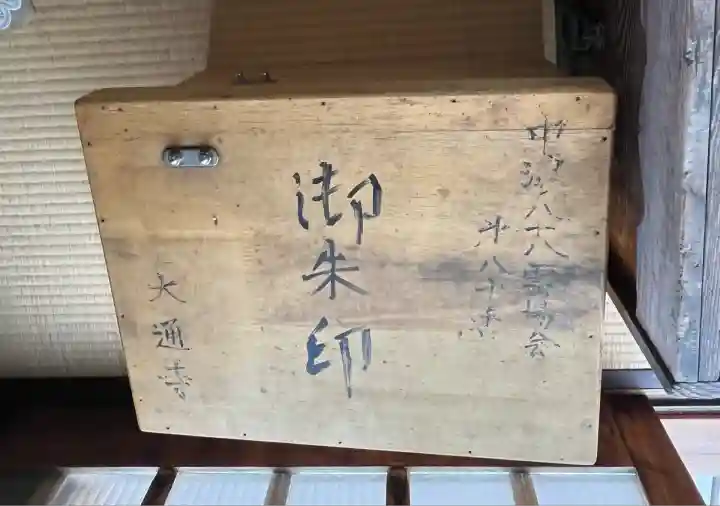 中國八十八霊場会
第八十番
御朱印
大通寺